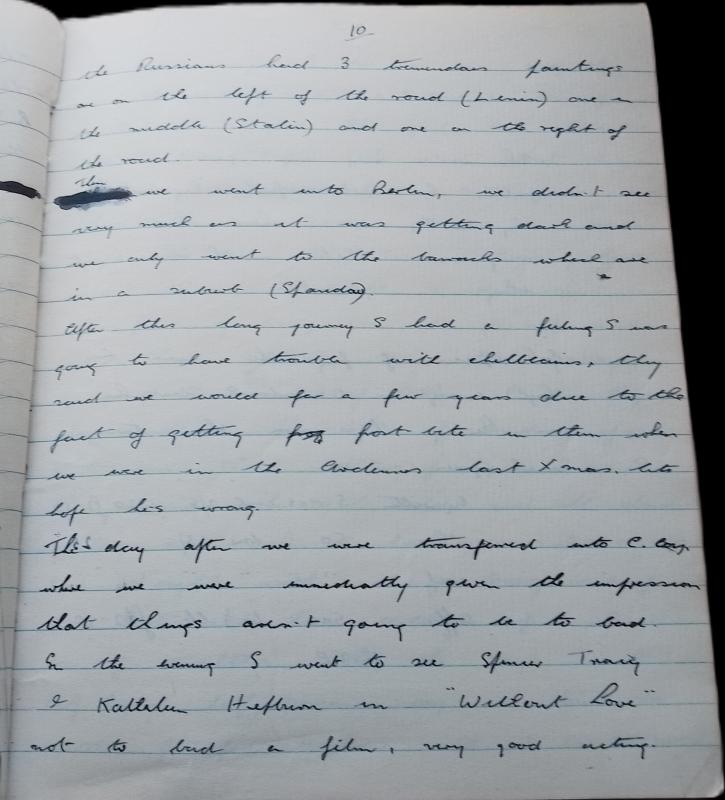 10
the Russians had 3 tremendous paintings
one on the left of the road (Lenin) one in
the middle (Stalin) and one on the right of
the road.
we went into Berlin, we didn't see
very much as it was getting dark and
we only went to the barracks which are
in a suburb (Spandau).
After this long journey I had a feeling I was
going to have trouble with chilblains, they
said we would for a few years due to the
fact of getting frost bite in them when
we were in the Ardennes last Xmas. lets
hope he's wrong.
This day after we were transferred into C. Coy.
where we were immediatly given the impression
that things aren't going to be to bad.
In the evening I went to see Spencer Tracy
& Kathleen Hepburn in "Without Love"
not to bad a film, very good acting.